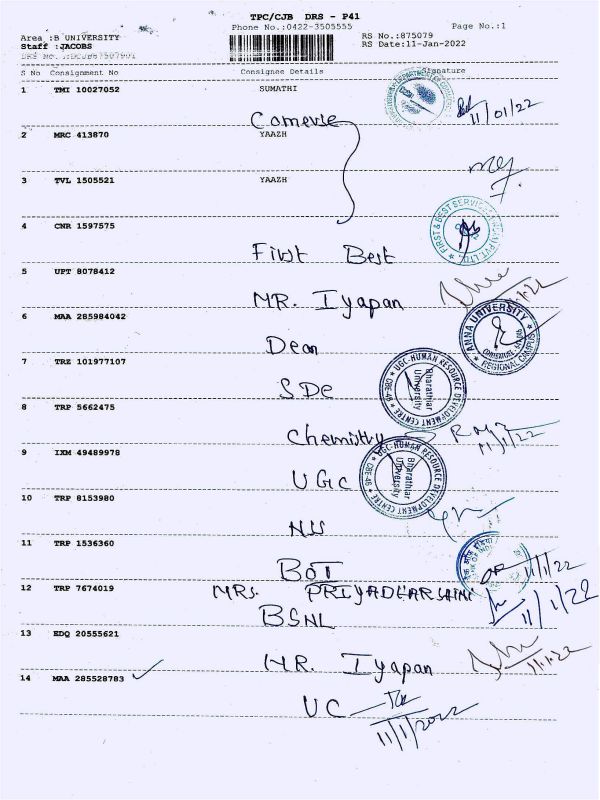 TPC/CJB DRS - P41
Phone No.:0422-3505555 Page No.:1
Area :B UNIVERSITY RS No.:875079
Staff :JACOBS RS Date:11-Jan-2022
S No Consignment No Consignee Details Signature
1 TMI 10027052 SUMATHI
11/01/22
2 MRC 413870 YAAZH
3 TVL 1505521 YAAZH
4 CNR 1597575
FIRST & BEST SERVICES
First Best
5 UPT 8078412
MR. Iyapan
6 MAA 285984042
ANNA UNIVERSITY REGIONAL CAMPUS
Dean
7 TRZ 101977107
UGC-HUMAN RESOURCE DEVELOPMENT CENTRE CBE-46 Bharathiar University
SDe
8 TRP 5662475
Chemistry 11/1/22
9 IXM 49489978
UGC-HUMAN RESOURCE DEVELOPMENT CENTRE CBE-46 Bharathiar University
UGC
10 TRP 8153980
11 TRP 1536360
BOI 11/1/22
12 TRP 7674019 MRS. 11/1/22
BSNL
13 EDQ 20555621
MR. Iyapan 11.1.22
14 MAA 285528783
UC 11/1/2022